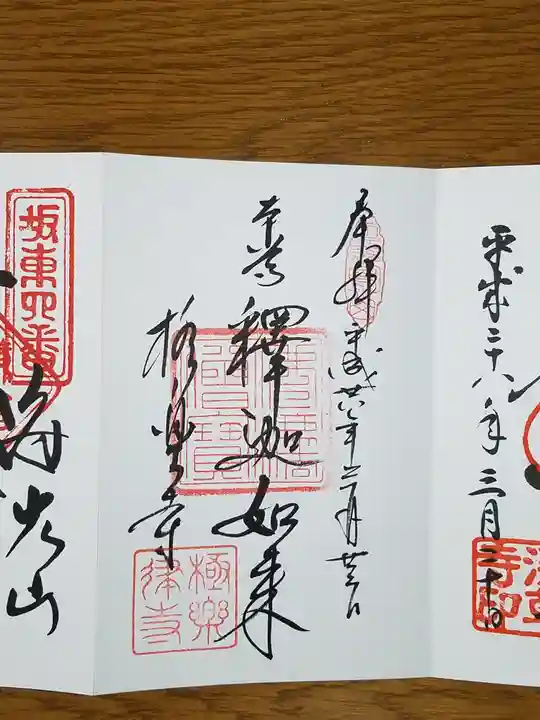 平成二十八年三月二十日
奉拝 平成廿八年二月廿三日
本尊 釋迦如来
極楽寺
佛法僧寳
極樂律寺
坂東四番
海光山